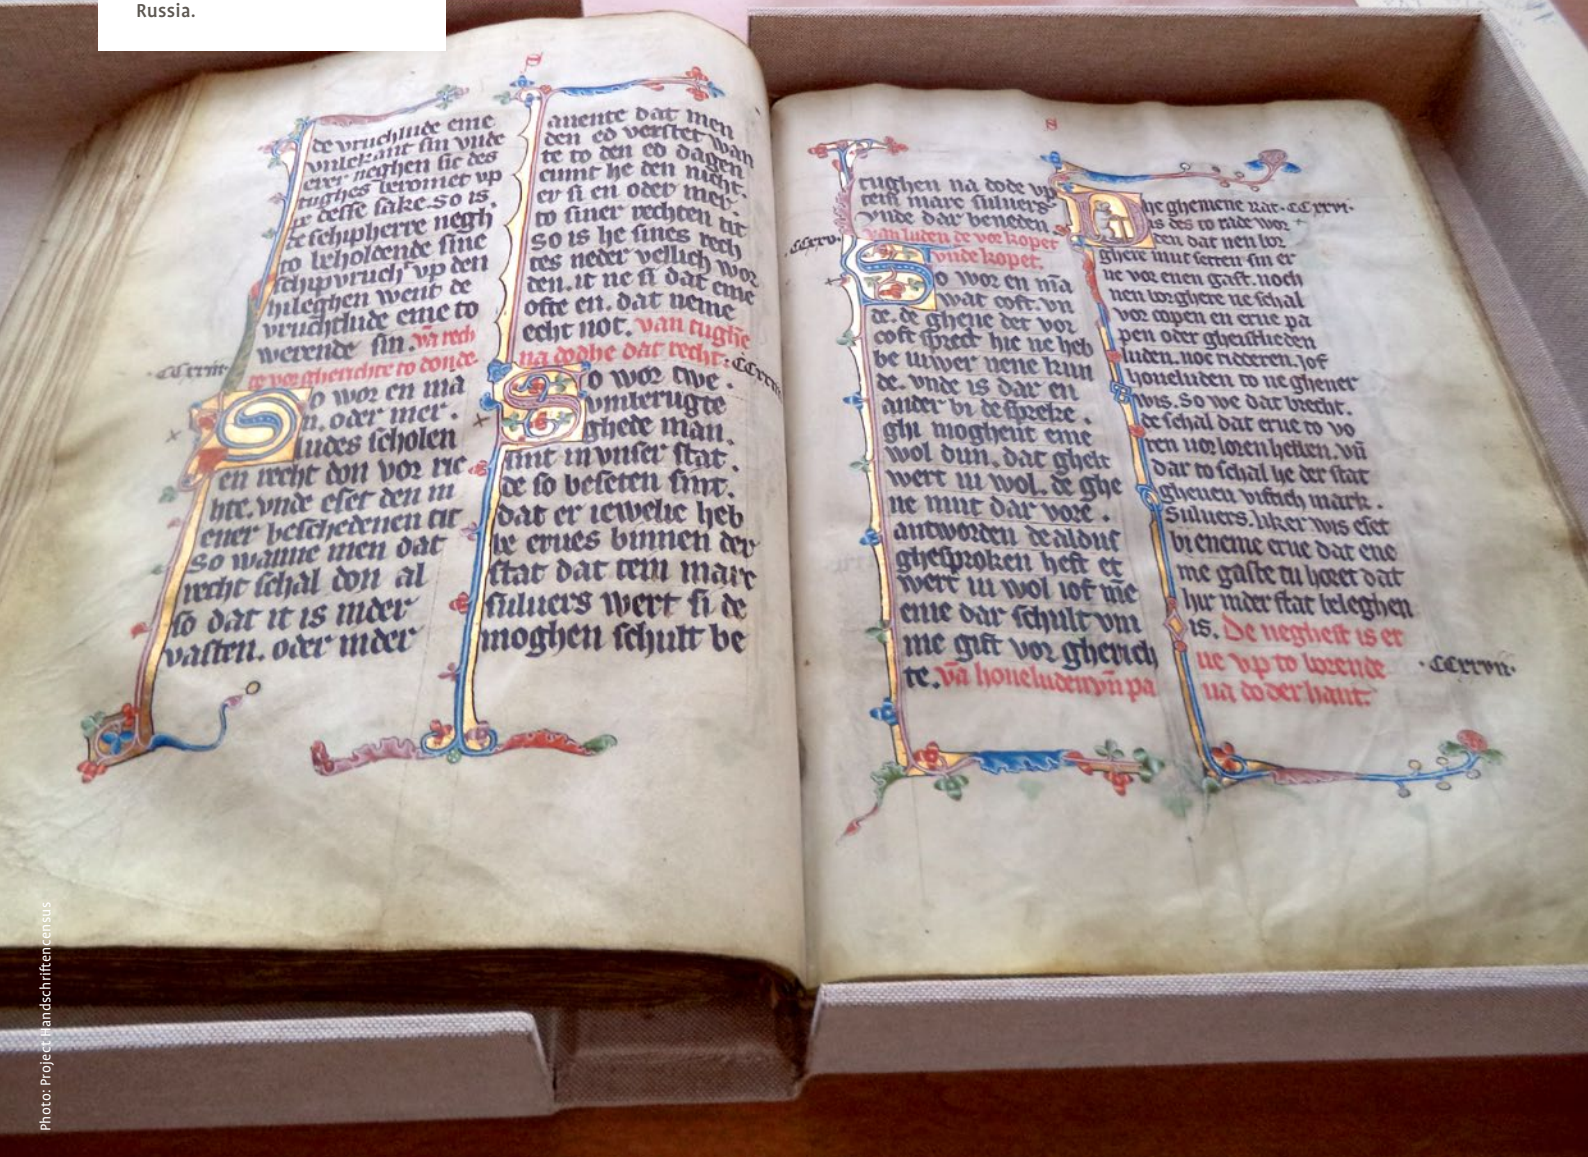 Russia.
de vruchlude eme
vnlekant sin vnde
erer neghen sic des
tughes beromet vp
desse sake. so is.
de schipherre negh
to beholdende sine
schipvruch vp den
hileghen went de
vruchtlude eme to
werende sin. vā rech
te vor gherichte to donde
·CCxxiii·
So wor en ma
n. oder mer.
ludes scholen
en recht don vor ric
hte. vnde eset den in
ener beschedenen tit
so wanne men dat
recht schal don al
so dat it is inder
vasten. oder inder
auente dat men
den ed verstet wan
te to den ed dagen
cumt he den nicht.
er si en oder mer.
to siner rechten tit
so is he sines rech
tes neder vellich wor
den. it ne si dat eme
ofte en. dat neme
echt not. van tughe
na dodhe dat recht.
So wor twe.
vmberugte
ghede man.
sint in vnser stat.
de so beseten sint.
dat er iewelic heb
be erues binnen der
stat dat tein marc
suluers wert si de
moghen schult be
tughen na dode vp
tein marc suluers
vnde dar beneden.
van luden de vor kopet
vnde kopet.
·CCxxv·
So wor en mā
wat coft. vn
de. de ghene der vor
coft sprect hic ne heb
be iuwer nene kun
de. vnde is dar en
ander bi de spreke.
ghi moghent eme
wol dun. dat ghelt
wert iu wol. de ghe
ne mut dar vore.
antworden de aldus
ghesproken heft et
wert iu wol iof me
eme dar schult vm
me gift vor gherich
te. vā houeluden vn pa
Dhe ghemene rat ·CCxxvi·
is des to rade wor
den dat nen bor
ghere mut setten sin er
ue vor enen gast. noch
nen borghere ne schal
vor copen en erue pa
pen oder gheistlieden
luden. noc ridderen. iof
houeluden to ne ghener
wis. So we dat brecht.
de schal dat erue to vo
ren vorloren hebben. vn
dar to schal he der stat
gheuen viftich mark.
suluers. liker wis eset
bi eneme erue dat ene
me gaste tu horet dat
hir inder stat beleghen
is. De neghest is er
ue vp to borende
na doder hant.
·CCxxvii·
Photo: Project Handschriftencensus